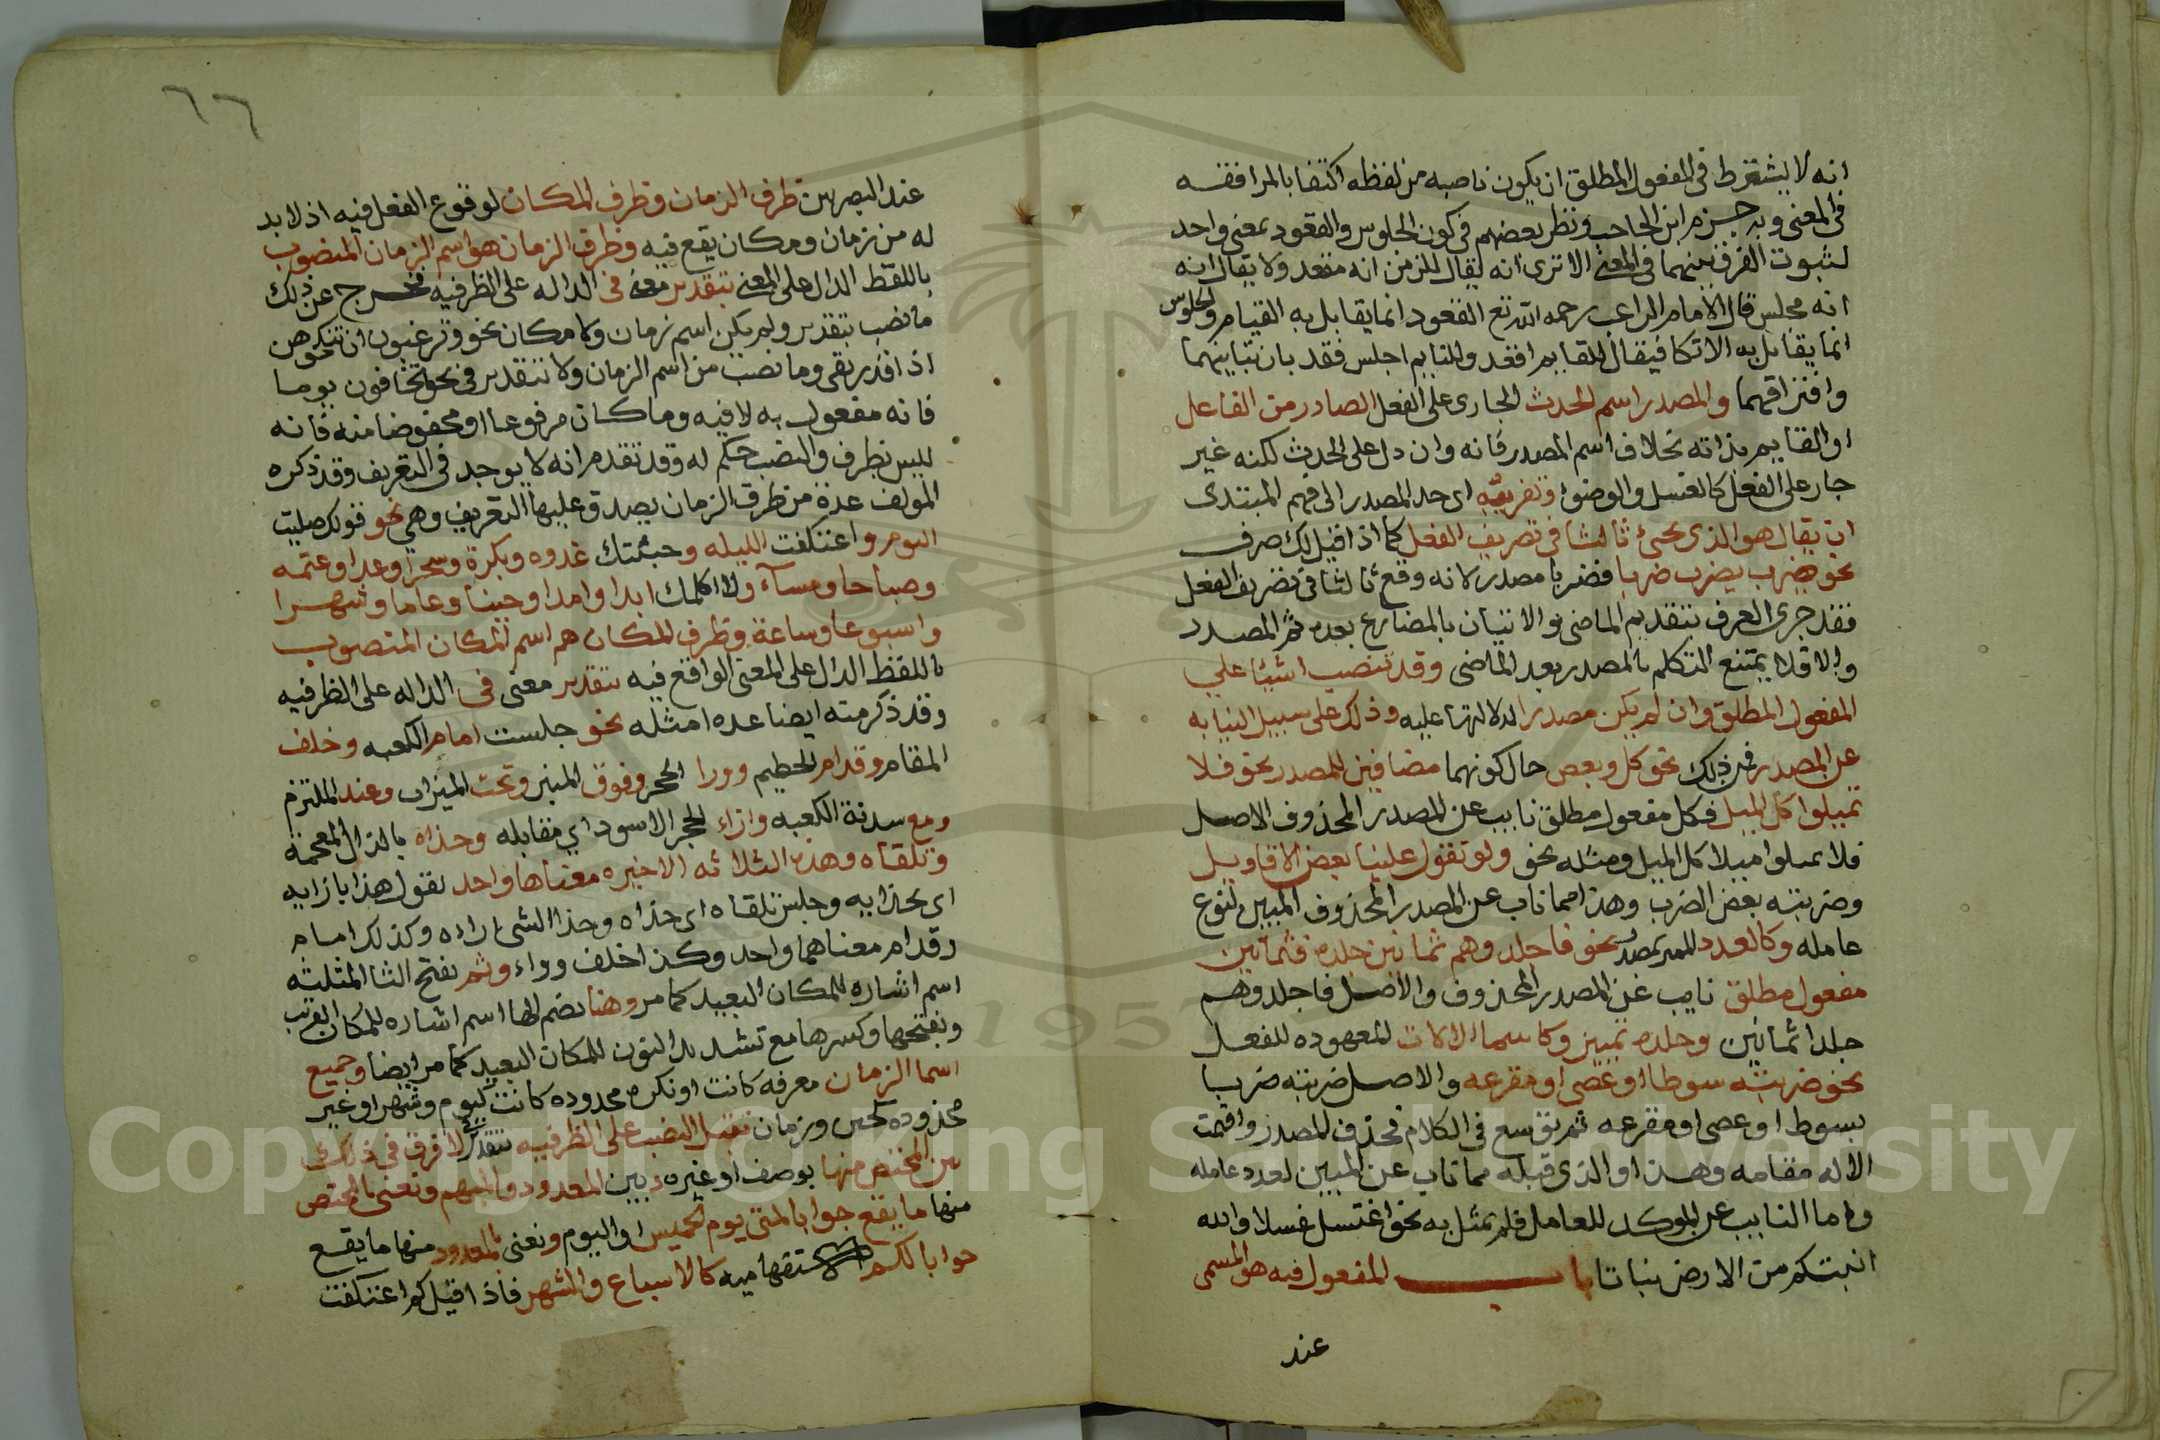 انه لا يشترط في المفعول المطلق ان يكون ناصبه من لفظه اكتفا بالمرافقه
في المعنى وبه جزم ابن الحاجب ونظر بعضهم في كون الجلوس والقعود بمعنى واحد
لثبوت الفرق بينهما في المعنى الا ترى انه يقال للزمن انه مقعد ولا يقال انه
انه مجلس قال الامام الراغب رحمه الله تع القعود انما يقابل به القيام والجلوس
انما يقابل به الاتكا فيقال للقايم اقعد وللنايم اجلس فقد بان تباينهما
وافتراقهما والمصدر اسم الحدث الجارى على الفعل الصادر من الفاعل
او القايم بذاته بخلاف اسم المصدر فانه وان دل على الحدث لكنه غير
جار على الفعل كالغسل والوضوء وتقريبه اى حد المصدر الى فهم المبتدى
ان يقال هو الذى يجئ ثالثا في تصريف الفعل كما اذا قيل لك صرف
نحو ضرب يضرب ضربا فضربا مصدر لانه وقع ثالثا في تصريف الفعل
فقد جرى العرف بتقديم الماضى والاتيان بالمضارع بعده ثم المصدر
والا فلا يمتنع التكلم بالمصدر بعد الماضى وقد تنصب اشيئا على
المفعول المطلق وان لم يكن مصدرا لدلالتها عليه وذلك على سبيل النيابه
عن المصدر فمن ذلك نحو كل وبعض حال كونهما مضافين للمصدر نحو فلا
تميلوا كل الميل فكل مفعول مطلق نايب عن المصدر المحذوف الاصل
فلا تميلوا ميلا كل الميل ومثله نحو ولو تقول علينا بعض الاقاويل
وضربته بعض الضرب وهذا مما ناب عن المصدر المحذوف المبين لنوع
عامله وكالعدد المميز بمصدر نحو فاجلدوهم ثمانين جلدة فثمانين
مفعول مطلق نايب عن المصدر المحذوف والاصل فاجلدوهم
جلدا ثمانين وجلده تمييز وكاسما الالات المعهوده للفعل
نحو ضربته سوطا او عصى او مقرعه والاصل ضربته ضربا
بسوط او عصى او مقرعه ثم توسع في الكلام فحذف المصدر واقيمت
الاله مقامه وهذا والذى قبله مما ناب عن المبين لعدد عامله
واما النايب عن الموكد للعامل فلم يمثل به نحو اغتسل غسلا والله
انبتكم من الارض نباتا باب المفعول فيه هو المسمى
عند
٦٦
عند البصريين ظرف الزمان وظرف المكان لوقوع الفعل فيه اذ لا بد
له من زمان ومكان يقع فيه وظرف الزمان هو اسم الزمان المنصوب
باللفظ الدال على المعنى بتقدير معنى فى الداله على الظرفيه فخرج عن ذلك
ما نصب بتقدير ولم يكن اسم زمان ولا مكان نحو وترغبون ان تنكحوهن
اذ اقدر بفي وما نصب من اسم الزمان ولا بتقدير في نحو يخافون يوما
فانه مفعول به لا فيه وما كان مرفوعا او مخفوضا منه فانه
ليس بظرف والنصب حكم له وقد تقدم انه لا يوجد في التعريف وقد ذكره
المولف عدة من ظرف الزمان يصدق عليها التعريف وهي نحو قولك صليت
اليوم واعتكفت الليله وجئتك غدوه وبكرة وسحرا وغدا وعتمه
وصباحا ومساء ولا اكلمك ابدا وامدا وحينا وعاما وشهرا
واسبوعا وساعة وظرف المكان هو اسم المكان المنصوب
باللفظ الدال على المعنى الواقع فيه بتقدير معنى فى الداله على الظرفيه
وقد ذكر منه ايضا عده امثله نحو جلست امام الكعبه وخلف
المقام وقدام الحطيم وورا الحجر وفوق المنبر وتحت الميزاب وعند الملتزم
ومع سدنة الكعبه وازاء الحجر الاسود اي مقابله وحذاه بالذال المعجمة
وتلقاه وهذه الثلاثه الاخيره معناها واحد تقول هذا بازايه
اى بحذايه وجلس تلقاه اى حذاه وحذا الشى ازاه وكذلك امام
وقدام معناهما واحد وكذا خلف ووراء وثم بفتح الثا المثلثه
اسم اشاره للمكان البعيد كما مر وهنا بضم الها اسم اشاره للمكان القريب
وبفتحها وكسرها مع تشديد النون للمكان البعيد كما مر ايضا وجميع
اسما الزمان معرفه كانت او نكره محدوده كانت كيوم وشهر او غير
محدوده كحين وزمان تقبل النصب على الظرفيه بتقدير في لا فرق في ذلك
بين المختص منها بوصف او غيره وبين المعدود والمبهم ونعنى بالمختص
منها ما يقع جوابا لمتى يوم الخميس او اليوم ونعنى بالمعدود منها ما يقع
جوابا لكم الاستفهاميه كالاسباع والشهر فاذا قيل كم اعتكفت
Copyright © King Saud University
1957